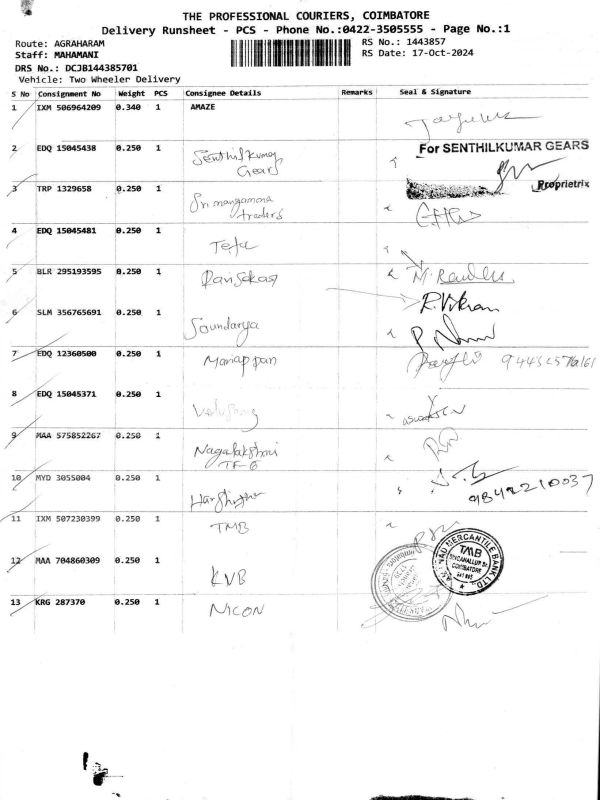 THE PROFESSIONAL COURIERS, COIMBATORE
Delivery Runsheet - PCS - Phone No.:0422-3505555 - Page No.:1
Route: AGRAHARAM
RS No.: 1443857
Staff: MAHAMANI
RS Date: 17-Oct-2024
DRS No.: DCJB144385701
Vehicle: Two Wheeler Delivery
S No Consignment No Weight PCS Consignee Details Remarks Seal & Signature
1 IXM 506964209 0.340 1 AMAZE
2 EDQ 15045438 0.250 1 Senthilkumar
Gears
For SENTHILKUMAR GEARS
Proprietrix
3 TRP 1329658 0.250 1 Sri mangamma
traders
4 EDQ 15045481 0.250 1
5 BLR 295193595 0.250 1
6 SLM 356765691 0.250 1 Soundarya
R. Vikram
7 EDQ 12360500 0.250 1 Mariappan
8 EDQ 15045371 0.250 1
9 MAA 575852267 0.250 1 Nagalakshmi
10 MYD 3055004 0.250 1
9842210037
11 IXM 507230399 0.250 1 TMB
12 MAA 704860309 0.250 1 KVB
TMB
COIMBATORE
13 KRG 287370 0.250 1 NICON